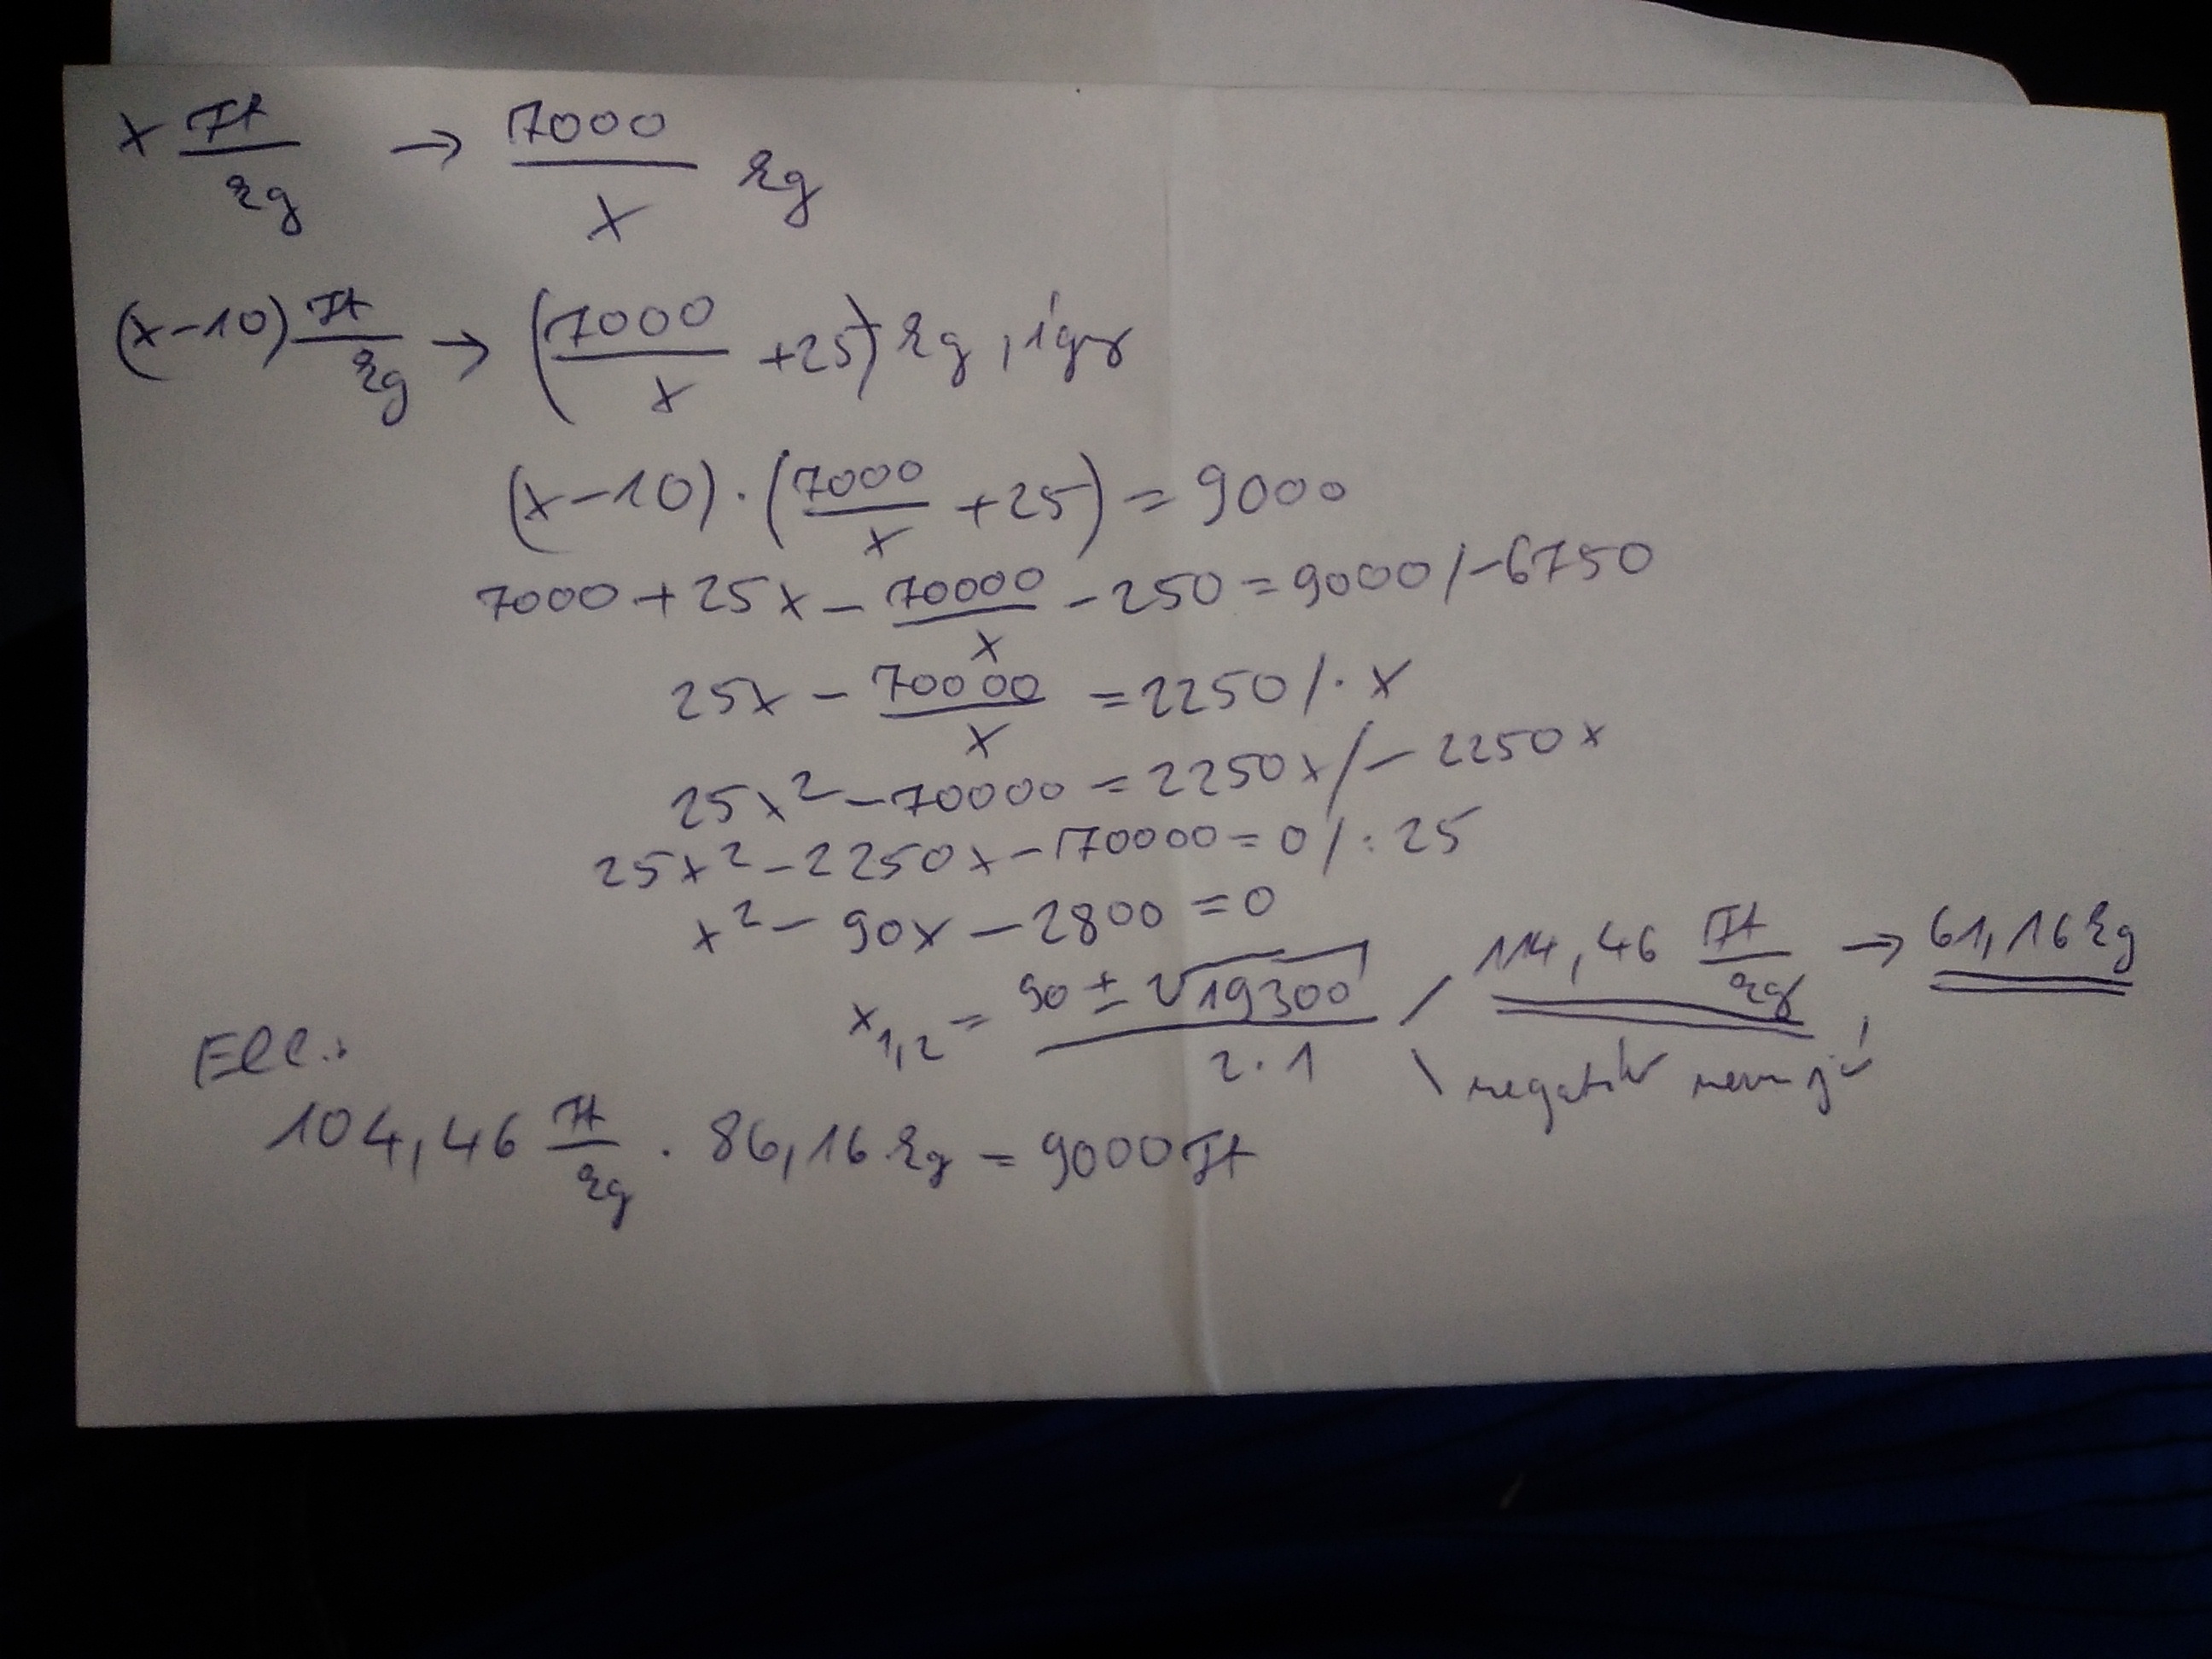 x Ft/kg → 7000/x kg
(x-10) Ft/kg → (7000/x +25) kg, így
(x-10)·(7000/x +25) = 9000
7000+25x-70000/x -250=9000 /-6750
25x - 70000/x = 2250 /·x
25x²-70000=2250x /-2250x
25x²-2250x-70000=0 /:25
x²-90x-2800=0
x1,2 = (90±√19300)/(2·1) / 114,46 Ft/kg → 61,16 kg
\ negatív nem jó
Ell.:
104,46 Ft/kg · 86,16 kg = 9000 Ft